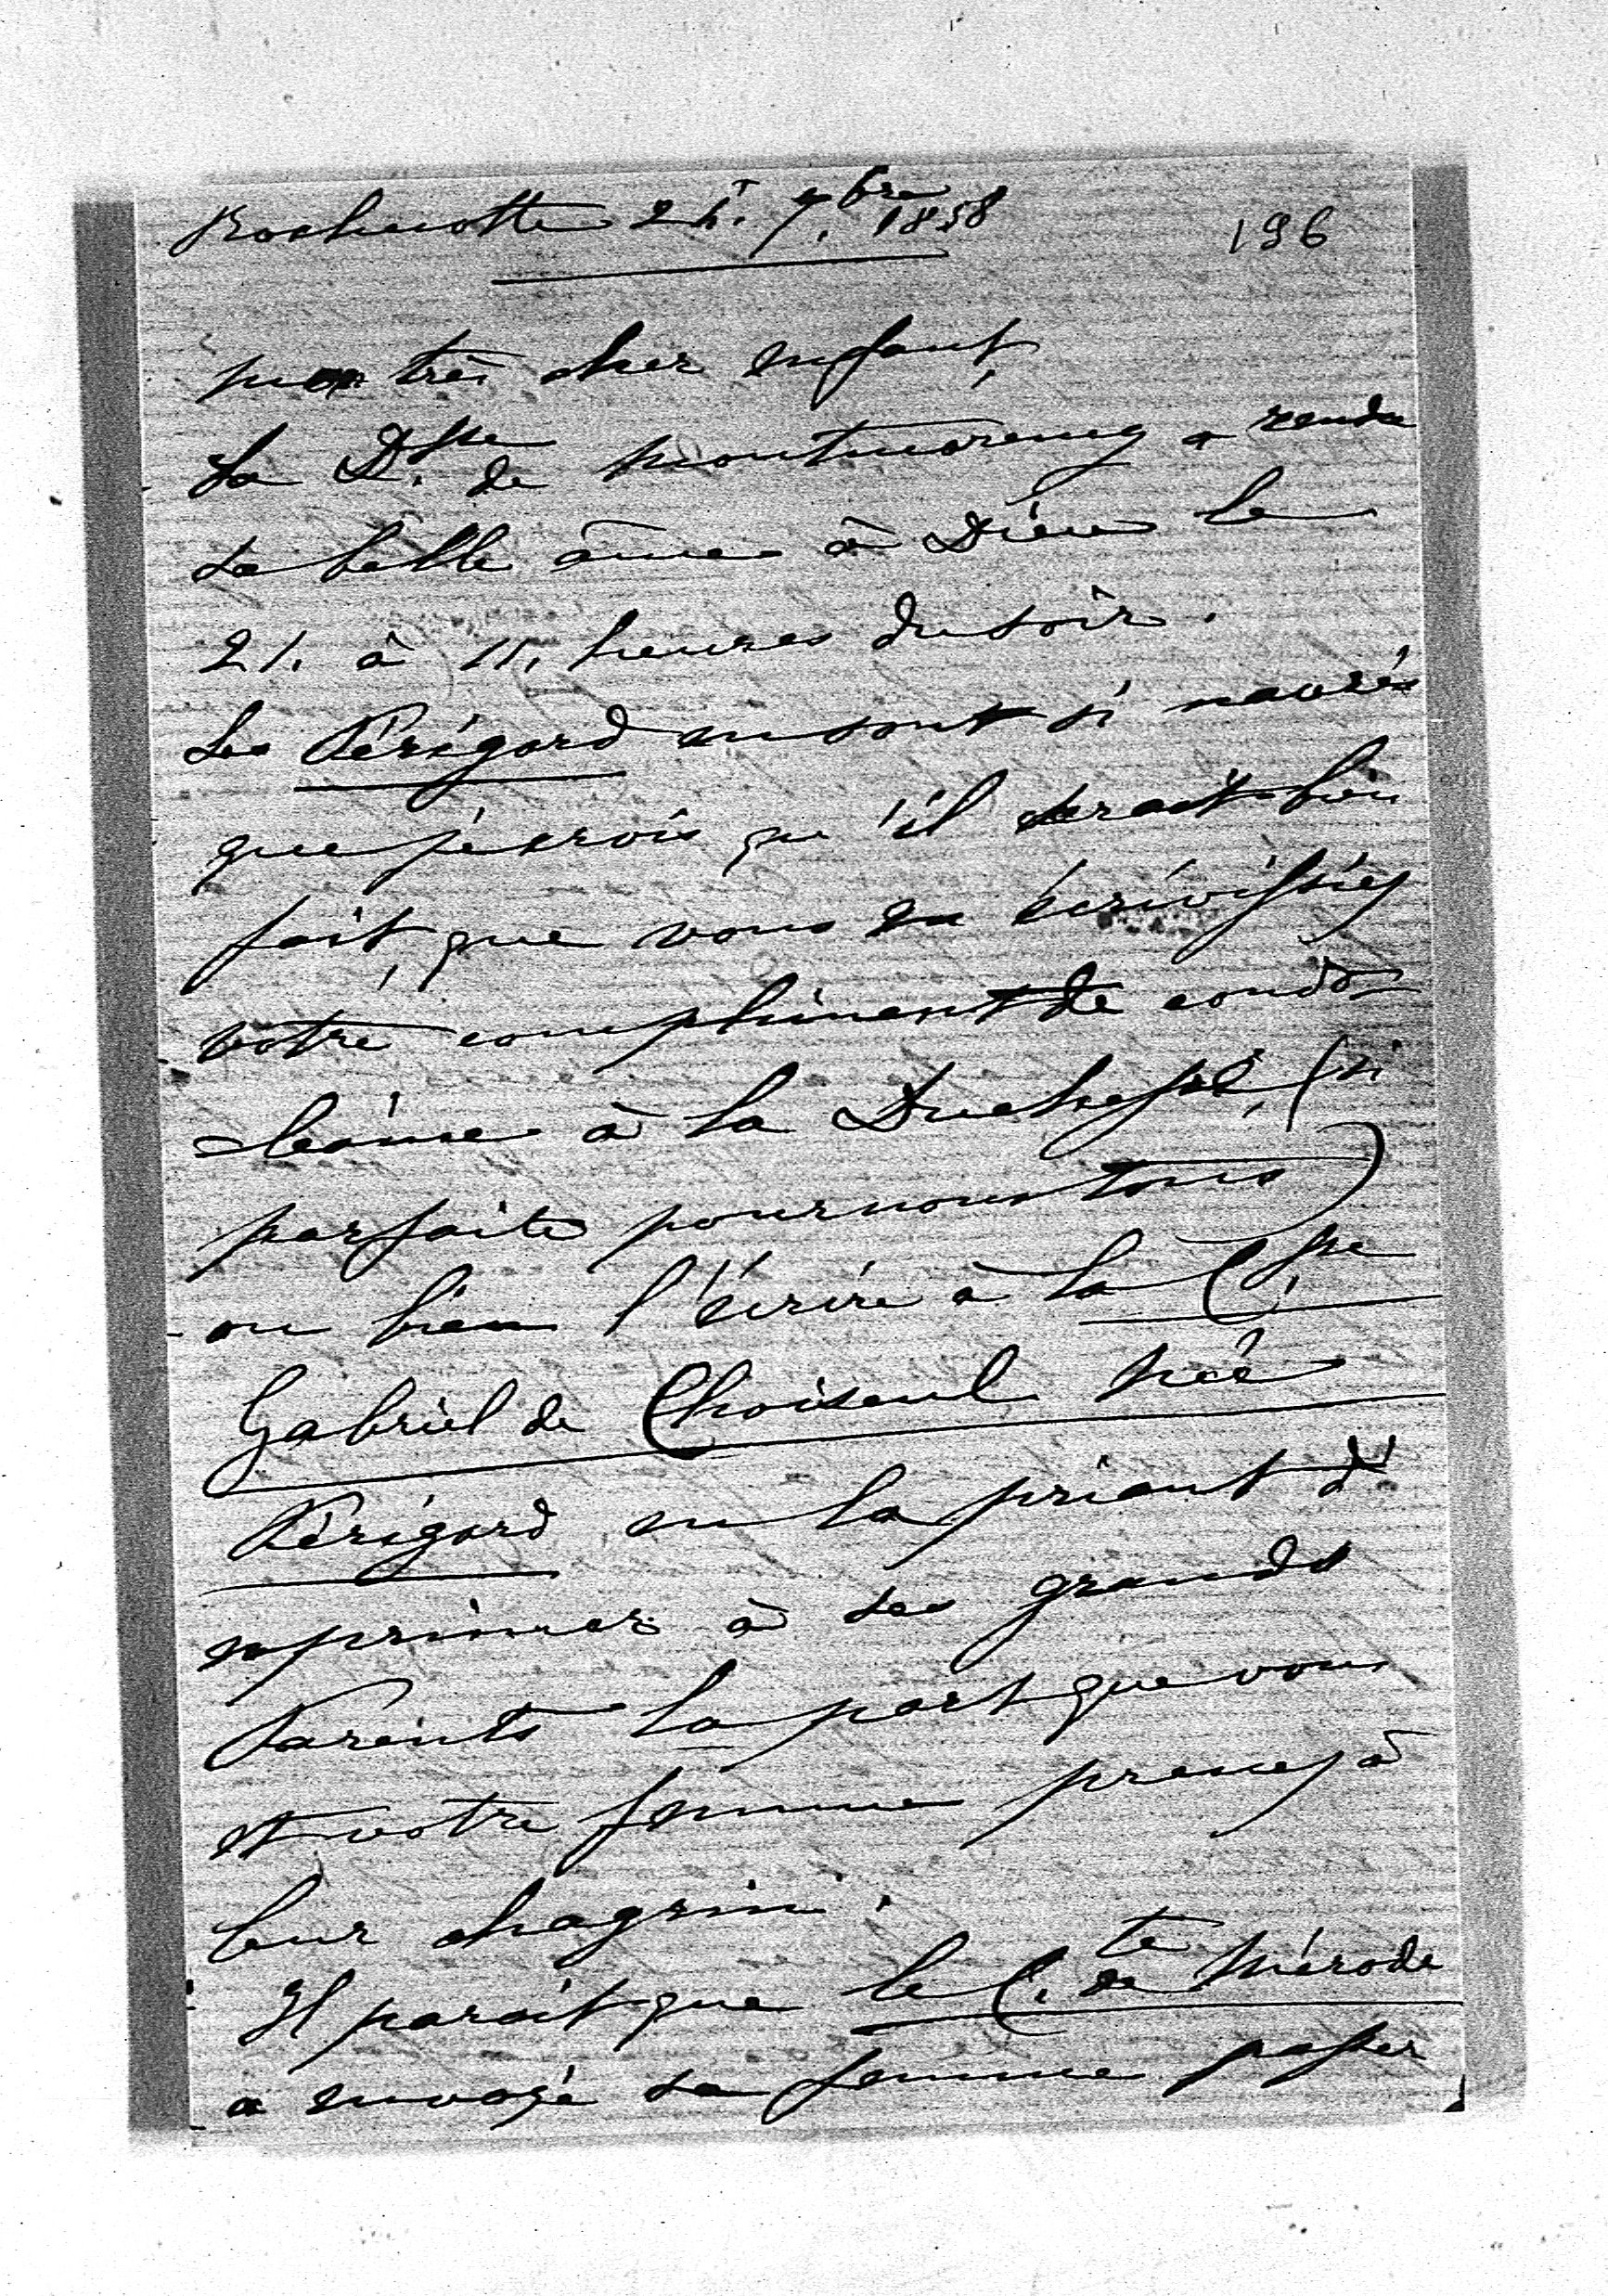 Rochecotte 24. 7bre 1858
196
mon très cher enfant,
La Dsse de Montmorency a rendu
sa belle âme à Dieu le
21. à 11. heures du soir.
Les Périgord en sont si navrés
que je crois qu'il serait bien
fait, que vous en écrivissiez
votre compliment de condo-
léance à la Duchesse, (si
parfaite pour nous tous)
ou bien l'écrire à la Csse
Gabriel de Choiseul née
Périgord en la priant d'
exprimer à ses grands
Parents la part que vous
et votre femme prenez à
leur chagrin.
Il parait que le Cte de Mérode
a envoyé sa femme passer